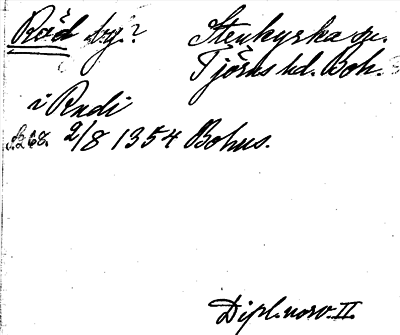 Röd by.? Stenkyrka sn.
Tjörns hd. Boh.
i Rudi
S. 268. 2/8 1354 Bohus.
Dipl. norv. II.